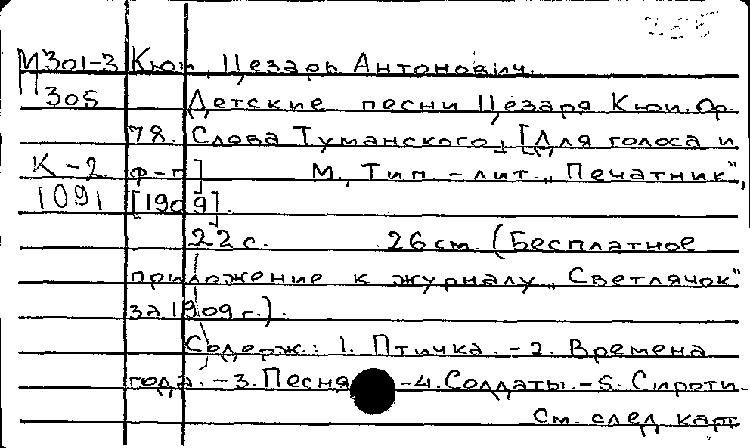 М301-3 Кюи, Цезарь Антонович.
П 305 Детские песни Цезаря Кюи. Ор.
78. Слова Туманского, [Для голоса и
К-2 ф-п] М., Тип.-лит. „Печатник",
1091 [1909].
22 с. 26 см. (Бесплатное
приложение к журналу „Светлячок"
за 1909 г.).
Содерж.: 1. Птичка. - 2. Времена
года. - 3. Песня - 4. Солдаты. - 5. Сироти-
См. след карт